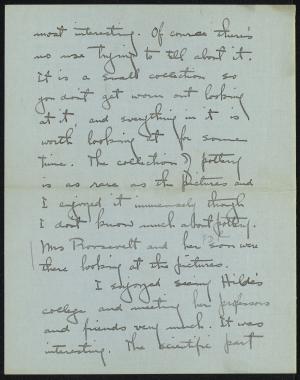 most interesting. Of course there's
no use trying to tell about it.
It is a small collection so
you don't get worn out looking
at it and everything in it is
worth looking at for some
time. The collection of pottery
is as rare as the pictures and
I enjoyed it immensely though
I dont know much about pottery.
Mrs Roosevelt and her son were
there looking at the pictures.
I enjoyed seeing Hilda's
college and meeting her professors
and friends very much. It was
interesting. The scientific part